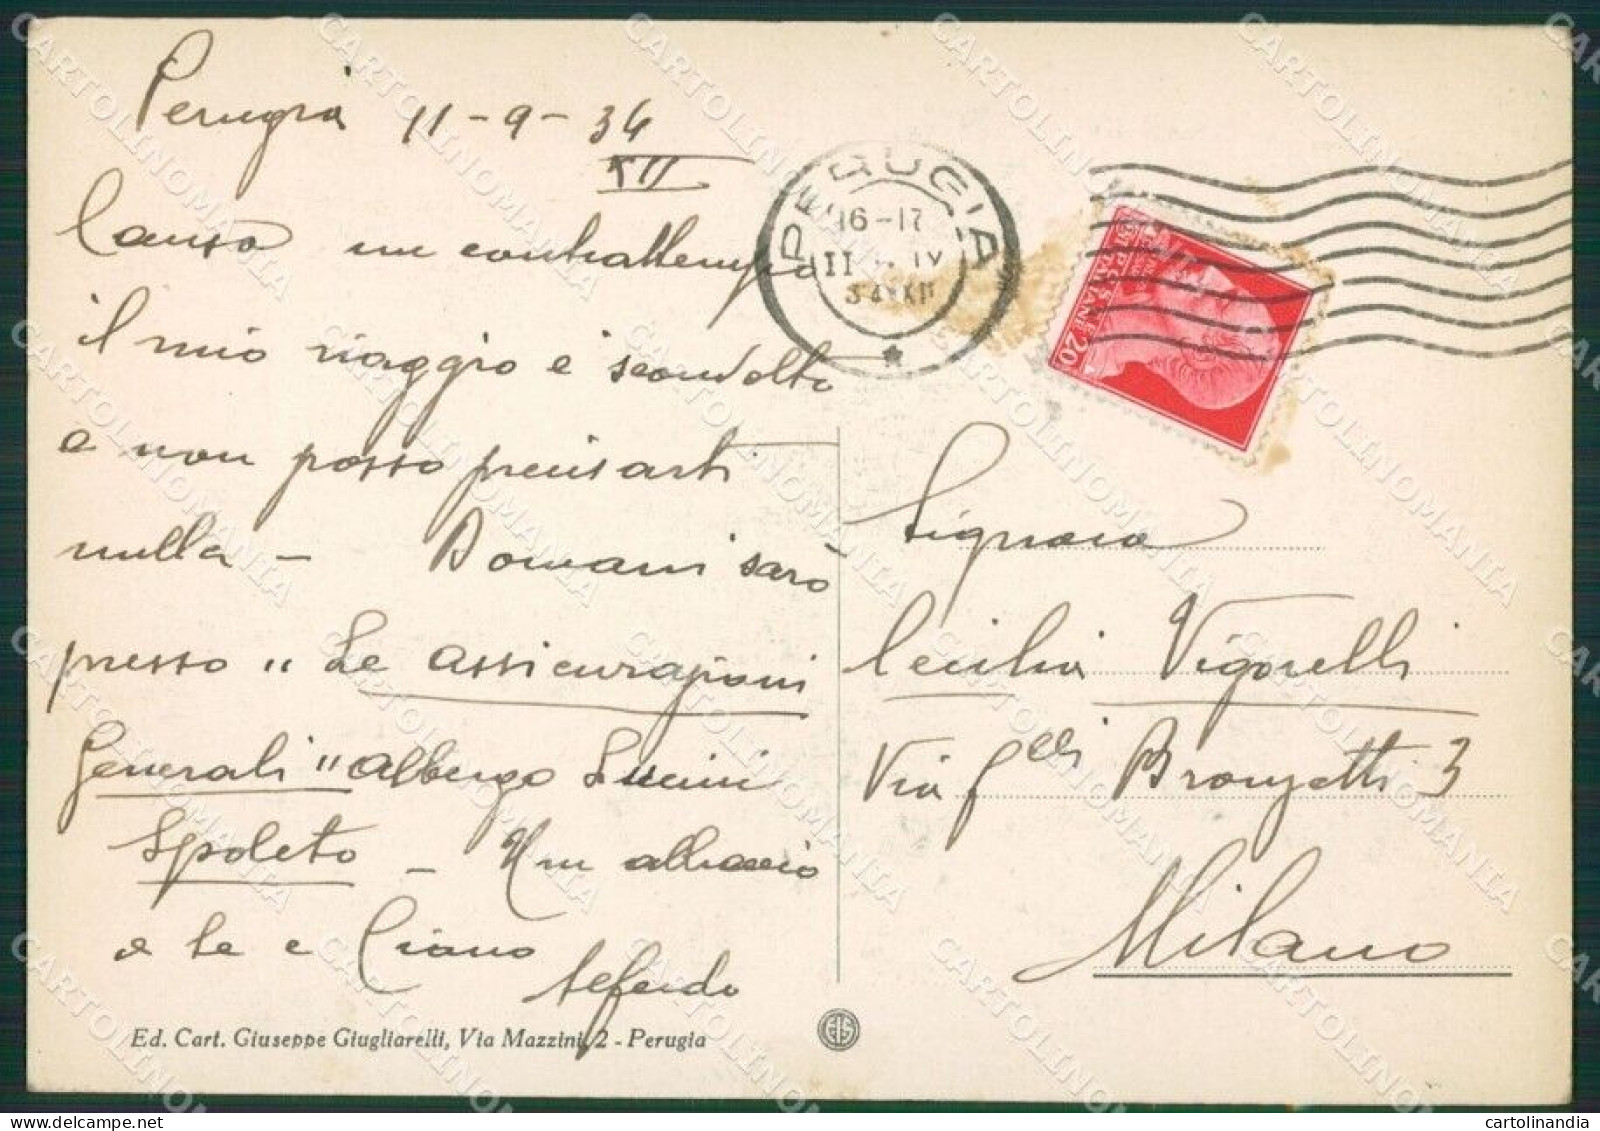 Perugia 11-9-34
XII
Causa un contrattempo
il mio viaggio è sconvolto
e non posso precisarti
nulla - Domani sarò
presso "Le assicurazioni
Generali" albergo Lucini
Spoleto - Un abbraccio
a te e Ciano
PERUGIA
16-17
34 XII
POSTE ITALIANE
20
Signora
Cecilia Vigorelli
Via F.lli Bronzetti 3
Milano
Ed. Cart. Giuseppe Giugliarelli, Via Mazzini, 2 - Perugia
CARTOLINOMANIA
cartolinandia